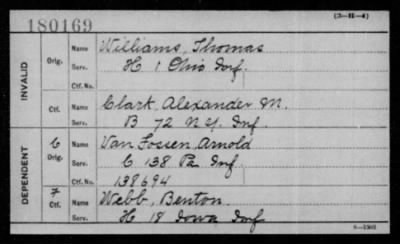 180169
(3-H-4)
INVALID
Orig. Name Williams, Thomas
Serv. H 1 Ohio Inf.
Ctf. No.
Ctf. Name Clark, Alexander M.
Serv. B 72 N.Y. Inf
DEPENDENT
C Orig. Name Van Fossen, Arnold
Serv. C 138 Pa Inf
Ctf. No. 138694
7 Ctf. Name Webb, Benton.
Serv. H 18 Iowa Inf